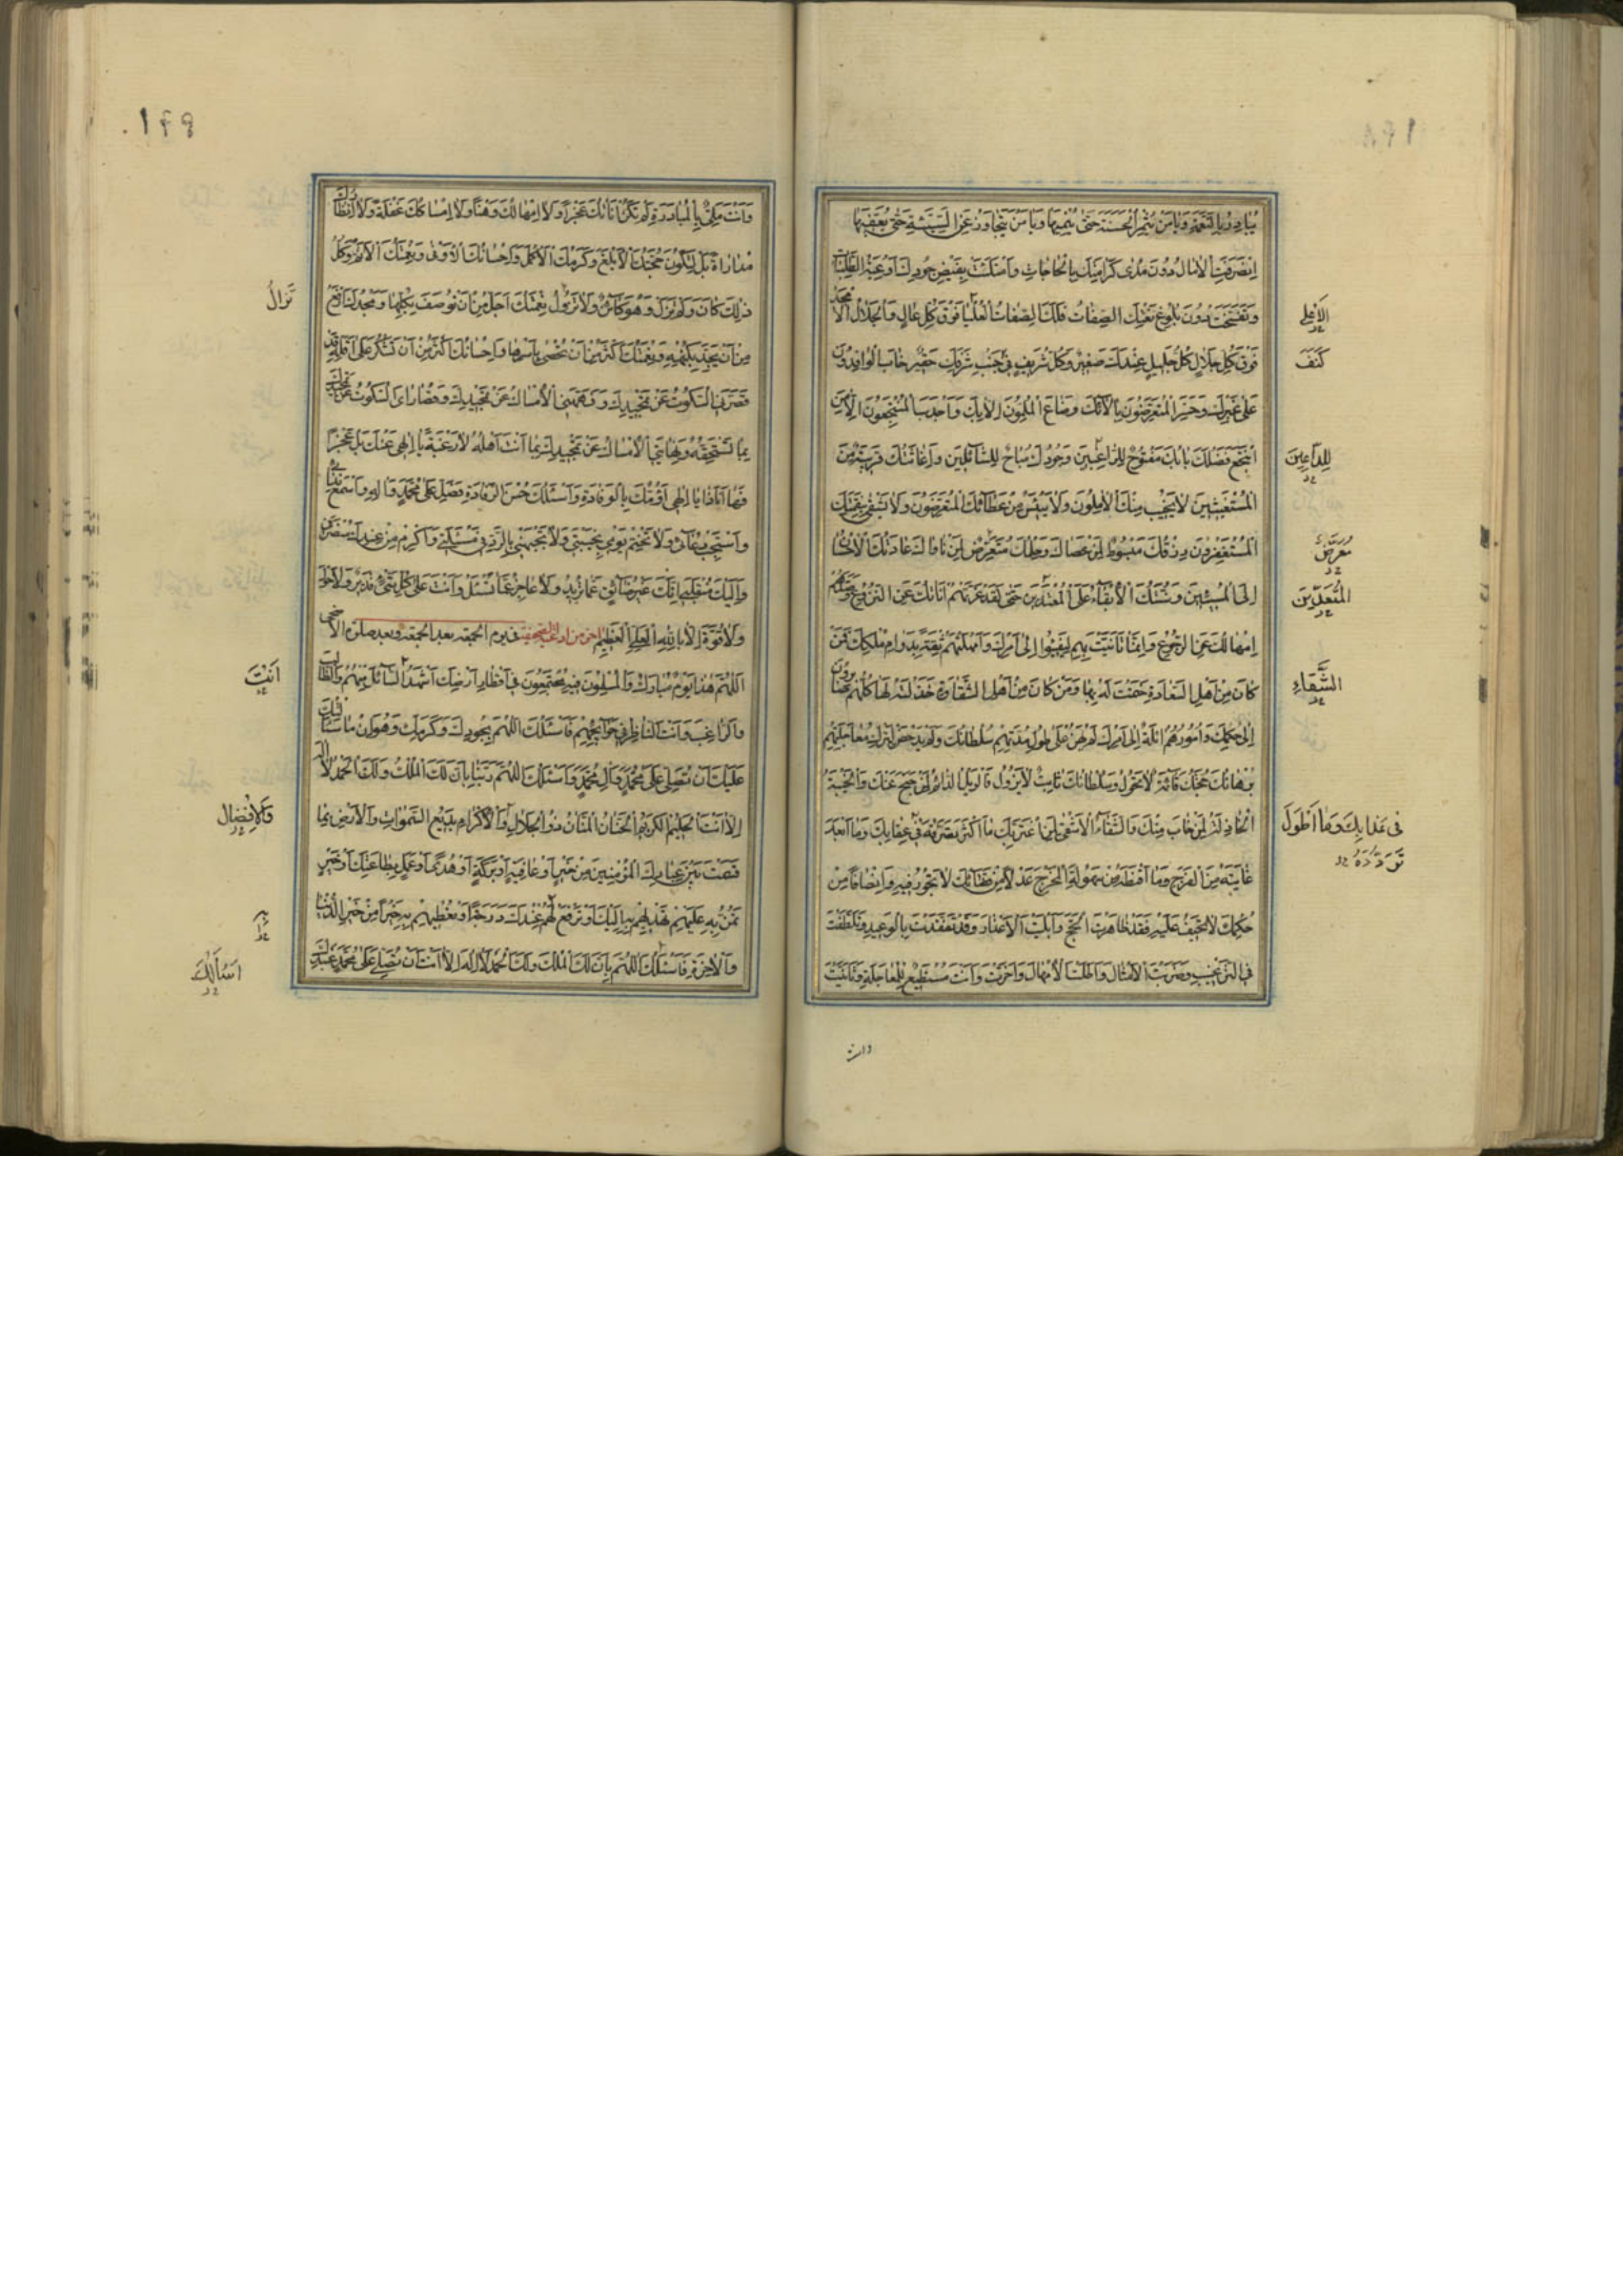 يُبَادِرُ بِالنَّقِمَةِ وَيَا مَنْ يُثْمِرُ الْحَسَنَةَ حَتَّى يُنْمِيَهَا وَيَا مَنْ يَتَجَاوَزُ عَنِ السَّيِّئَةِ حَتَّى يُعَفِّيَهَا
اِنْصَرَفَتِ الْاٰمَالُ دُونَ مَدٰى كَرَمِكَ بِالْحَاجَاتِ وَامْتَلَأَتْ بِفَيْضِ جُودِكَ اَوْعِيَةُ الطَّلِبَاتِ
وَتَفَسَّخَتْ دُونَ بُلُوغِ نَعْتِكَ الصِّفَاتُ فَلَكَ الصِّفَاتُ الْعُلْيَا فَوْقَ كُلِّ عَالٍ وَالْجَلَالُ الْاَمْجَدُ
فَوْقَ كُلِّ جَلَالٍ كُلُّ جَلِيلٍ عِنْدَكَ صَغِيرٌ وَكُلُّ شَرِيفٍ فِي جَنْبِ شَرَفِكَ حَقِيرٌ خَابَ الْوَافِدُونَ
عَلَى غَيْرِكَ وَخَسِرَ الْمُتَعَرِّضُونَ اِلَّا لَكَ وَضَاعَ الْمُلِمُّونَ اِلَّا بِكَ وَاَجْدَبَ الْمُنْتَجِعُونَ اِلَّا مَنِ
انْتَجَعَ فَضْلَكَ بَابُكَ مَفْتُوحٌ لِلرَّاغِبِينَ وَجُودُكَ مُبَاحٌ لِلسَّائِلِينَ وَاِغَاثَتُكَ قَرِيبَةٌ مِنَ
الْمُسْتَغِيثِينَ لَا يَخِيبُ مِنْكَ الْاٰمِلُونَ وَلَا يَيْئَسُ مِنْ عَطَائِكَ الْمُتَعَرِّضُونَ وَلَا يَشْقَى بِنَقِمَتِكَ
الْمُسْتَغْفِرُونَ رِزْقُكَ مَبْسُوطٌ لِمَنْ عَصَاكَ وَحِلْمُكَ مُتَعَرِّضٌ لِمَنْ نَاوَاكَ عَادَتُكَ الْاِحْسَانُ
اِلَى الْمُسِيئِينَ وَسُنَّتُكَ الْاِبْقَاءُ عَلَى الْمُعْتَدِينَ حَتَّى لَقَدْ غَرَّتْهُمْ اَنَاتُكَ عَنِ النُّزُوعِ وَصَدَّهُمْ
اِمْهَالُكَ عَنِ الرُّجُوعِ وَاِنَّمَا تَأَنَّيْتَ بِهِمْ لِيَفِيئُوا اِلَى اَمْرِكَ وَاَمْهَلْتَهُمْ ثِقَةً بِدَوَامِ مُلْكِكَ فَمَنْ
كَانَ مِنْ اَهْلِ السَّعَادَةِ خَتَمْتَ لَهُ بِهَا وَمَنْ كَانَ مِنْ اَهْلِ الشَّقَاوَةِ خَذَلْتَهُ لَهَا كُلُّهُمْ صَائِرُونَ
اِلَى حُكْمِكَ وَاُمُورُهُمْ اٰئِلَةٌ اِلَى اَمْرِكَ لَمْ يَهِنْ عَلَى طُولِ مُدَّتِهِمْ سُلْطَانُكَ وَلَمْ يَدْحَضْ لِتَرْكِ مُعَاجَلَتِهِمْ
بُرْهَانُكَ حُجَّتُكَ قَائِمَةٌ لَا تَحُولُ وَسُلْطَانُكَ ثَابِتٌ لَا يَزُولُ فَالْوَيْلُ الدَّائِمُ لِمَنْ جَنَحَ عَنْكَ وَالْخَيْبَةُ
الْخَاذِلَةُ لِمَنْ خَابَ مِنْكَ وَالشَّقَاءُ الْاَشْقَى لِمَنِ اغْتَرَّ بِكَ مَا اَكْثَرَ تَصَرُّفَهُ فِي عِقَابِكَ وَمَا اَبْعَدَ
غَايَتَهُ مِنَ الْفَرَجِ وَمَا اَقْنَطَهُ مِنْ سُهُولَةِ الْمَخْرَجِ عَدْلًا مِنْ قَضَائِكَ لَا تَجُورُ فِيهِ وَاِنْصَافًا مِنْ
حُكْمِكَ لَا تَحِيفُ عَلَيْهِ فَقَدْ ظَاهَرْتَ الْحُجَجَ وَاَبْلَيْتَ الْاَعْذَارَ وَقَدْ تَقَدَّمْتَ بِالْوَعِيدِ وَتَلَطَّفْتَ
فِي التَّرْغِيبِ وَضَرَبْتَ الْاَمْثَالَ وَاَطَلْتَ الْاِمْهَالَ وَاَخَّرْتَ وَاَنْتَ مُسْتَطِيعٌ لِلْمُعَاجَلَةِ وَتَأَنَّيْتَ
الْاَعْلٰى
كَنَفَ
لِلدَّاعِينَ
مُعَرَّضٌ
الْمُتَعَدِّينَ
الشَّقَاءِ
فِي عَذَابِكَ وَمَا اَطْوَلَ
تَرَدُّدَهُ
وانت
١٤٩
وَاَنْتَ مَلِيءٌ بِالْمُبَادَرَةِ لَمْ تَكُنْ اَنَاتُكَ عَجْزًا وَلَا اِمْهَالُكَ وَهْنًا وَلَا اِمْسَاكُكَ غَفْلَةً وَلَا انْتِظَارُكَ
مُدَارَاةً بَلْ لِتَكُونَ حُجَّتُكَ اَبْلَغَ وَكَرَمُكَ اَكْمَلَ وَاِحْسَانُكَ اَوْفٰى وَنِعْمَتُكَ اَتَمَّ وَكُلُّ
ذٰلِكَ كَانَ وَلَمْ تَزَلْ وَهُوَ كَائِنٌ وَلَا تَزُولُ نِعْمَتُكَ اَجَلُّ مِنْ اَنْ تُوصَفَ بِكُلِّهَا وَمَجْدُكَ اَرْفَعُ
مِنْ اَنْ يُحَدَّ بِكُنْهِهِ وَنِعْمَتُكَ اَكْثَرُ مِنْ اَنْ تُحْصٰى بِاَسْرِهَا وَاِحْسَانُكَ اَكْثَرُ مِنْ اَنْ تُشْكَرَ عَلَى اَقَلِّهِ وَقَدْ
قَصَّرَ بِيَ السُّكُوتُ عَنْ تَحْمِيدِكَ وَفَهَّهَنِي الْاِمْسَاكُ عَنْ تَمْجِيدِكَ وَقُصَارَايَ السُّكُوتُ عَنْ تَحْمِيدِكَ
بِمَا تَسْتَحِقُّهُ وَنِهَايَتِي الْاِمْسَاكُ عَنْ تَمْجِيدِكَ بِمَا اَنْتَ اَهْلُهُ لَا رَغْبَةً يَا اِلٰهِي عَنْكَ بَلْ عَجْزًا
فَهَا اَنَا ذَا يَا اِلٰهِي اَؤُمُّكَ بِالْوِفَادَةِ وَاَسْئَلُكَ حُسْنَ الرِّفَادَةِ فَصَلِّ عَلَى مُحَمَّدٍ وَاٰلِهِ وَاسْمَعْ نِدَائِي
وَاسْتَجِبْ دُعَائِي وَلَا تَخْتِمْ يَوْمِي بِخَيْبَتِي وَلَا تَجْبَهْنِي بِالرَّدِّ فِي مَسْئَلَتِي وَاَكْرِمْ مِنْ عِنْدِكَ مُنْصَرَفِي
وَاِلَيْكَ مُنْقَلَبِي اِنَّكَ غَيْرُ ضَائِقٍ عَمَّا تُرِيدُ وَلَا عَاجِزٍ عَمَّا تُسْئَلُ وَاَنْتَ عَلَى كُلِّ شَيْءٍ قَدِيرٌ وَلَا حَوْلَ
وَلَا قُوَّةَ اِلَّا بِاللّٰهِ الْعَلِيِّ الْعَظِيمِ اخر من ادعية الصحيفة في يوم الجمعة بعد الجمعة وبعد صلوة الاضحى
اَللّٰهُمَّ هٰذَا يَوْمٌ مُبَارَكٌ وَالْمُسْلِمُونَ فِيهِ مُجْتَمِعُونَ فِي اَقْطَارِ اَرْضِكَ اَشْهَدُ السَّائِلَ مِنْهُمْ وَالطَّالِبَ
وَالرَّاغِبَ وَاَنْتَ النَّاظِرُ فِي حَوَائِجِهِمْ فَاَسْئَلُكَ اللّٰهُمَّ بِجُودِكَ وَكَرَمِكَ وَهَوَانِ مَا سَئَلْتُكَ
عَلَيْكَ اَنْ تُصَلِّيَ عَلَى مُحَمَّدٍ وَاٰلِ مُحَمَّدٍ وَاَسْئَلُكَ اللّٰهُمَّ رَبَّنَا بِاَنَّ لَكَ الْمُلْكَ وَلَكَ الْحَمْدَ لَا اِلٰهَ
اِلَّا اَنْتَ الْحَلِيمُ الْكَرِيمُ الْحَنَّانُ الْمَنَّانُ ذُو الْجَلَالِ وَالْاِكْرَامِ بَدِيعُ السَّمٰوَاتِ وَالْاَرْضِ مَهْمَا
قَسَمْتَ بَيْنَ عِبَادِكَ الْمُؤْمِنِينَ مِنْ خَيْرٍ اَوْ عَافِيَةٍ اَوْ بَرَكَةٍ اَوْ هُدًى اَوْ عَمَلٍ بِطَاعَتِكَ اَوْ خَيْرٍ
تَمُنُّ بِهِ عَلَيْهِمْ تَهْدِيهِمْ بِهِ اِلَيْكَ اَوْ تَرْفَعُ لَهُمْ عِنْدَكَ دَرَجَةً اَوْ تُعْطِيهِمْ بِهِ خَيْرًا مِنْ خَيْرِ الدُّنْيَا
وَالْاٰخِرَةِ فَاَسْئَلُكَ اللّٰهُمَّ بِاَنَّ لَكَ الْمُلْكَ وَلَكَ الْحَمْدَ لَا اِلٰهَ اِلَّا اَنْتَ اَنْ تُصَلِّيَ عَلَى مُحَمَّدٍ عَبْدِكَ
تَزَالُ
اَنْتَ
وَالْاِفْضَالِ
اَسْأَلُكَ